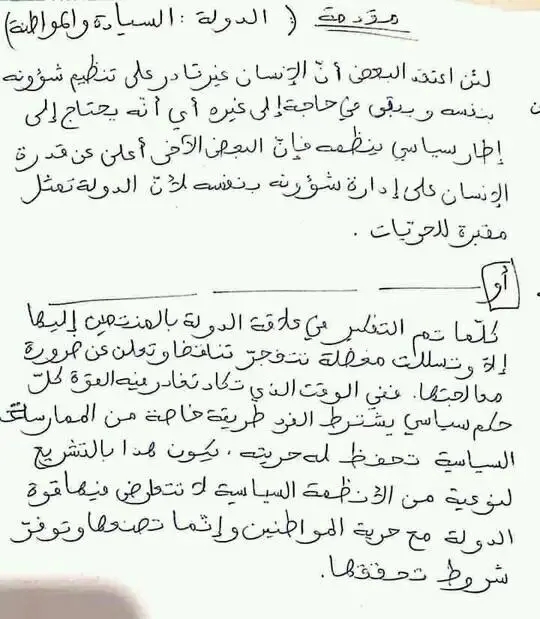 مقدمة ( الدولة : السيادة والمواطنة)
لئن اعتقد البعض أنّ الإنسان غير قادر على تنظيم شؤونه
بنفسه ويبقى في حاجة إلى غيره أي أنّه يحتاج إلى
إطار سياسي ينظمه فإنّ البعض الآخر أعلن عن قدرة
الإنسان على إدارة شؤونه بنفسه لأنّ الدولة تمثل
مقبرة للحريّات .
أو
كلّما تم التفكير في علاقة الدولة بالمنتمين إليها
إلا وتسللت معضلة تتفجّر تناقضا وتعلن عن ضرورة
معالجتها. ففي الوقت الذي تكاد تغادر فيه القوة كلّ
حكم سياسي يشترط الفرد طريقة خاصة من الممارسة
السياسية تحفظ له حريته ، يكون هذا بالتشريع
لنوعية من الأنظمة السياسية لا تتعارض فيها قوة
الدولة مع حرية المواطنين وإنّما تصنعها وتوفّر
شروط تحققها.